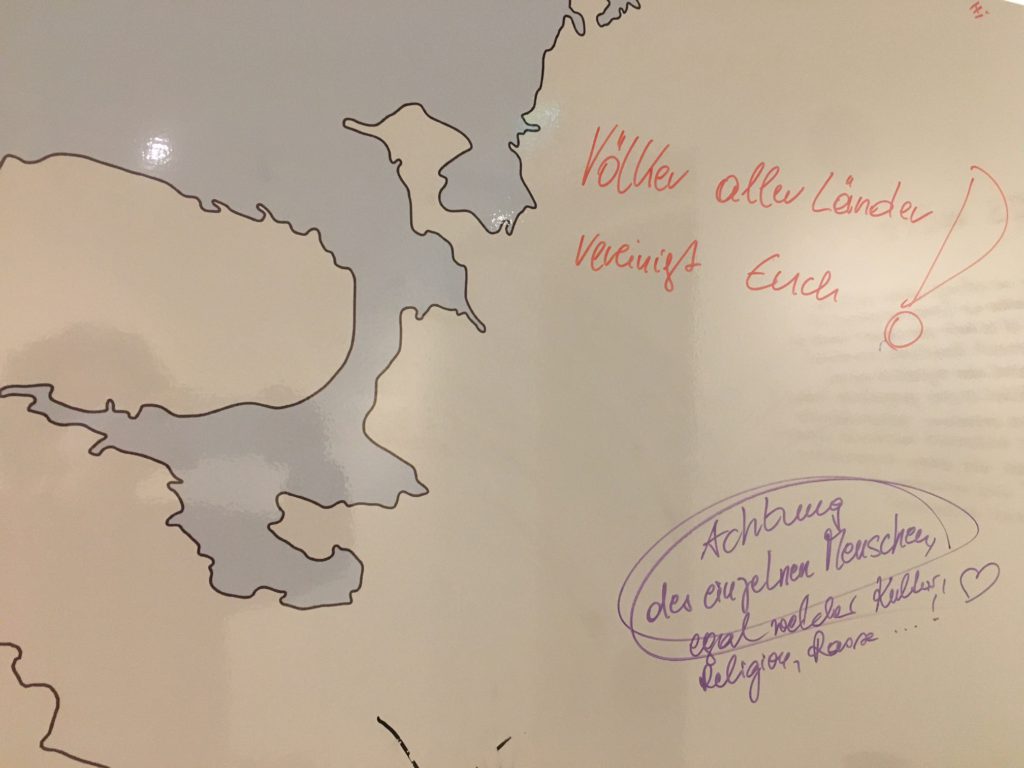 Hi
Völker aller Länder
vereinigt Euch !
Achtung
des einzelnen Menschen,
egal welcher Kultur,
Religion, Rasse ... ! ♡